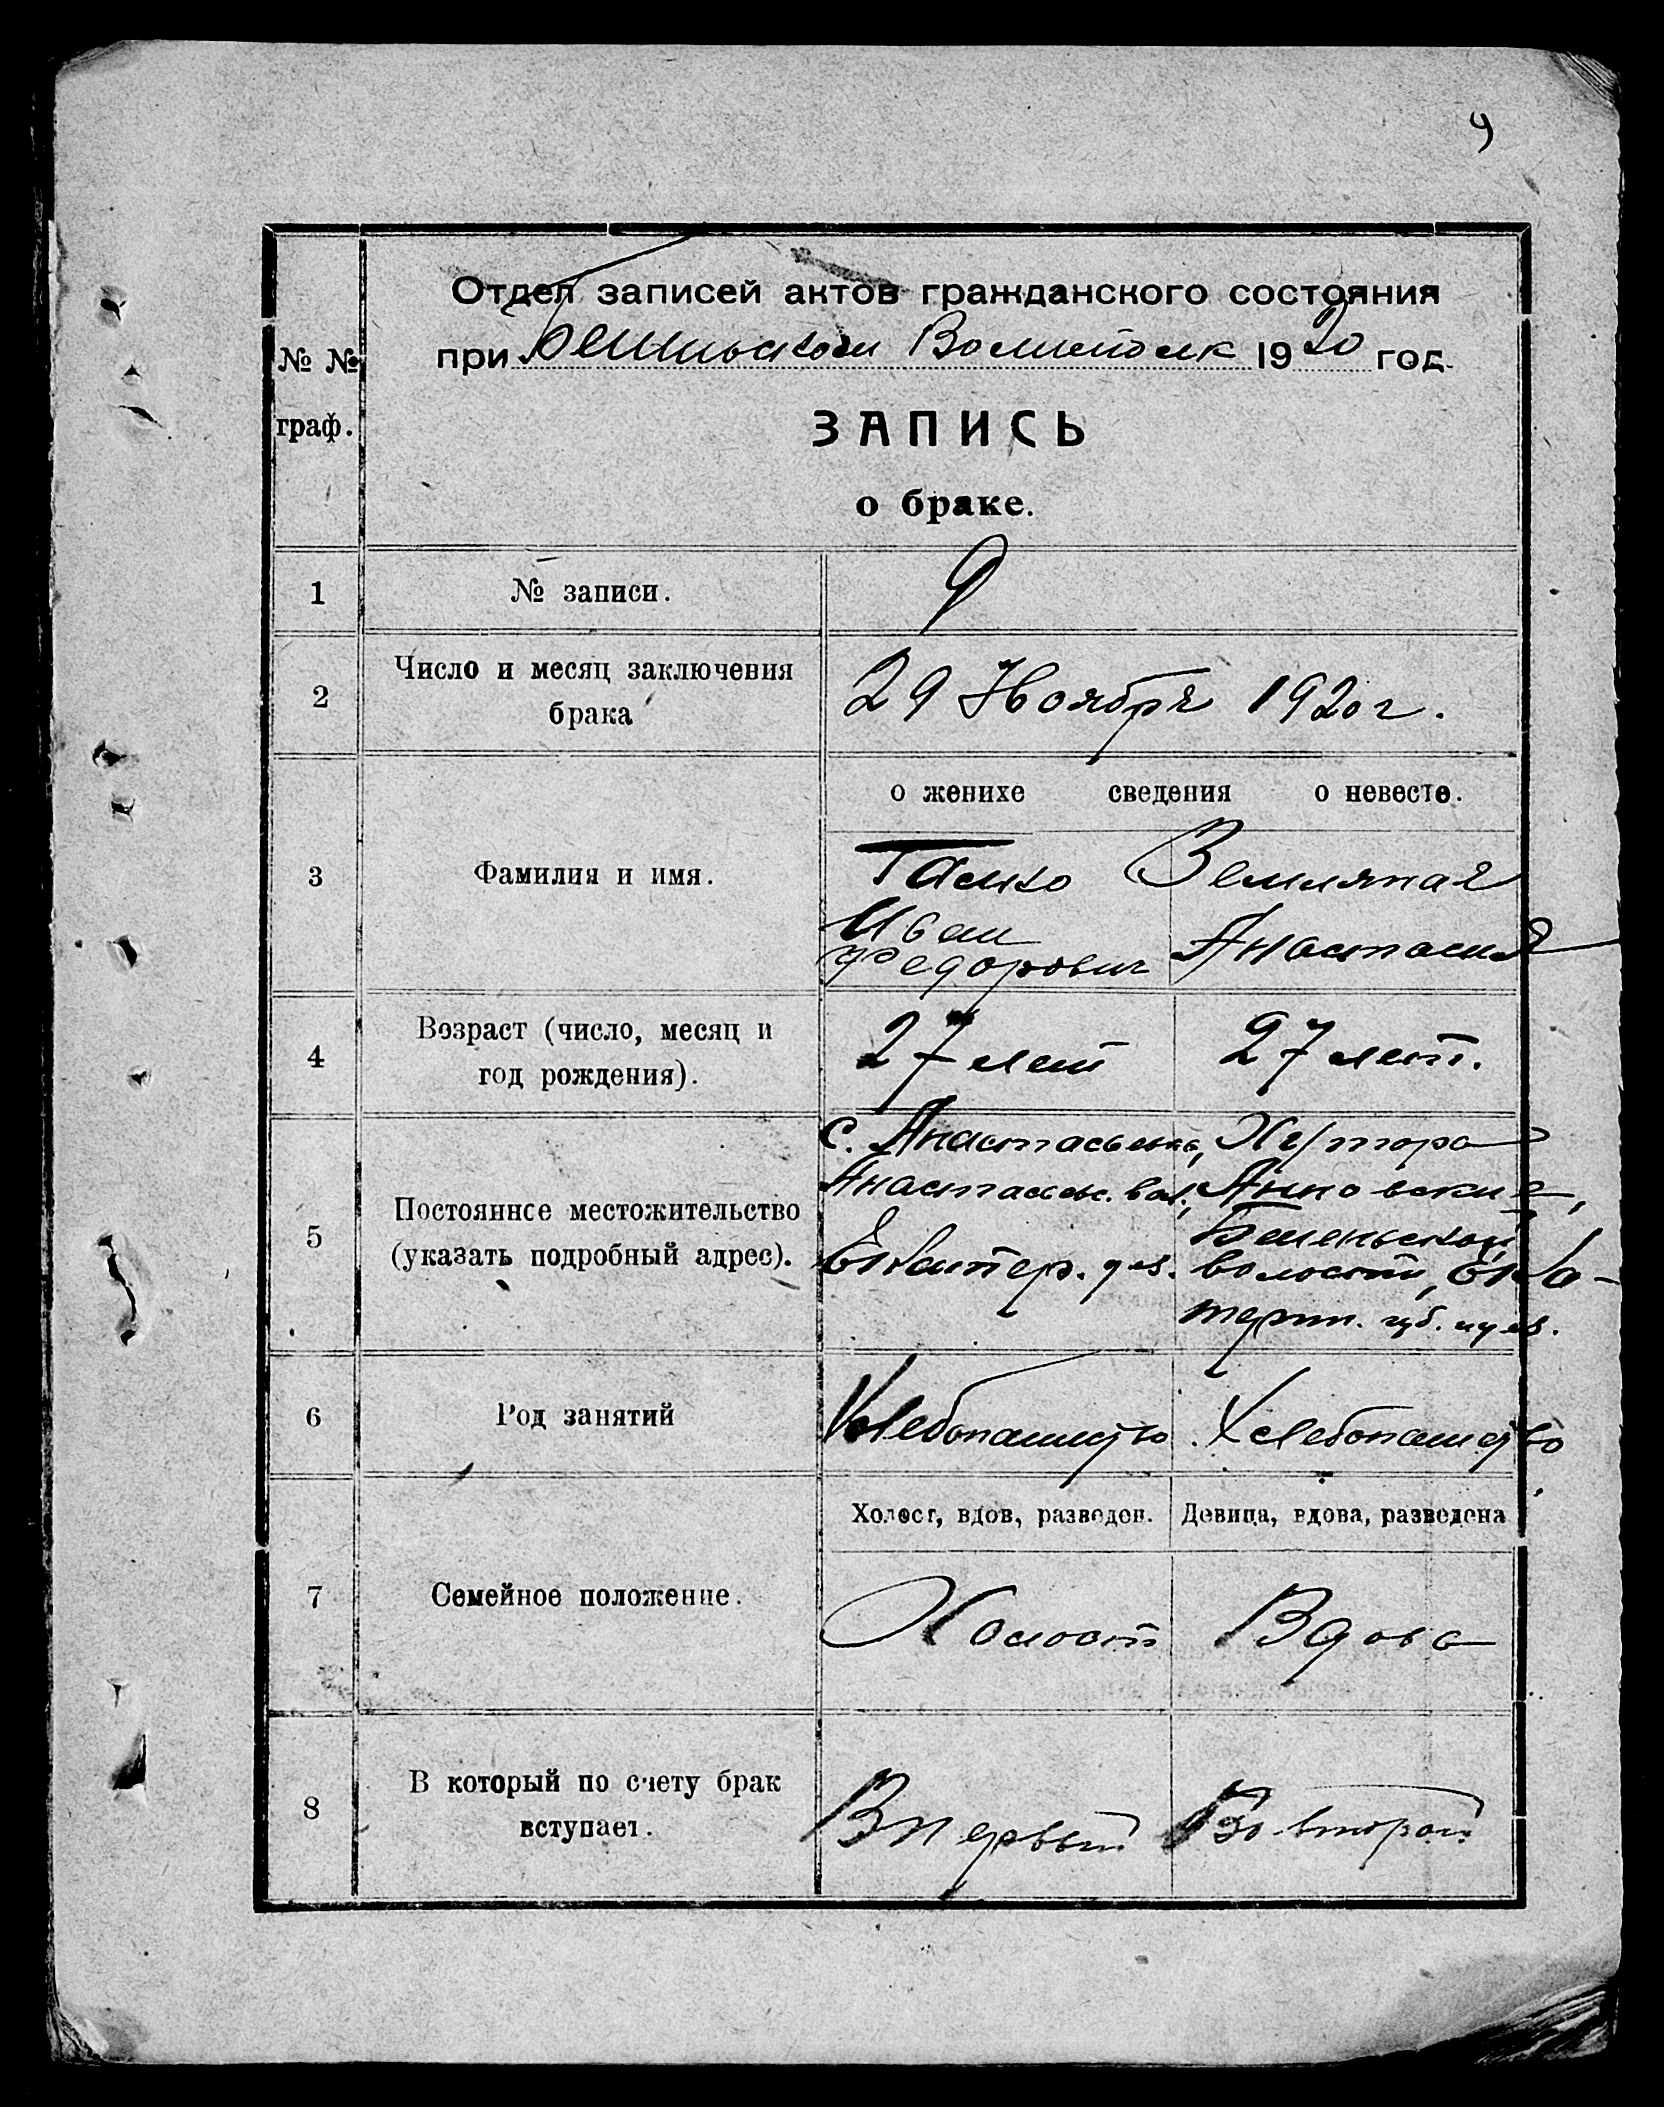 9
Отдел записей актов гражданского состояния
при Волисполк 1920 год.
№ №
граф.
ЗАПИСЬ
о браке.
1 № записи. 9
2 Число и месяц заключения
брака
29 Ноября 1920 г.
о женихе сведения о невесте.
3 Фамилия и имя.
Земляная
Иван
Федорович Анастасия
4 Возраст (число, месяц и
год рождения).
27 лет 27 лет.
с. Хутора
Анновские,
5 Постоянное местожительство
(указать подробный адрес).
Екатер. уез. волости, Екa-
терин. губ. и уез.
6 Род занятий
Хлебопашество Хлебопашество
Холост, вдов, разведен. Девица, вдова, разведена
7 Семейное положение.
Холост Вдова
8 В который по счету брак
вступает.
В первый Во второй